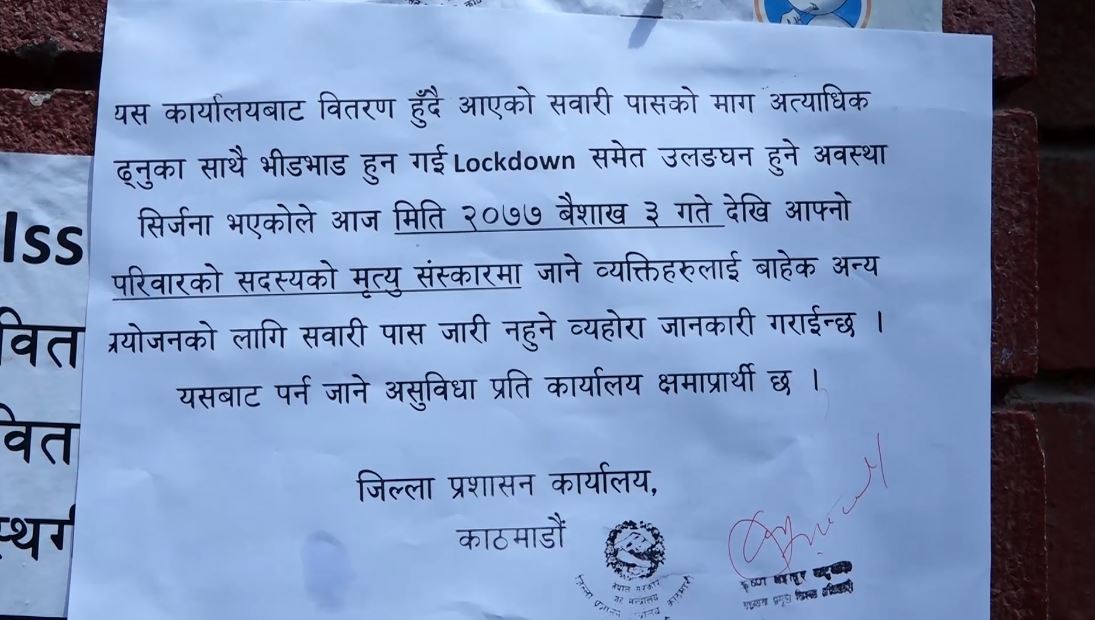 यस कार्यालयबाट वितरण हुँदै आएको सवारी पासको माग अत्याधिक
ढ्नुका साथै भीडभाड हुन गई Lockdown समेत उलङघन हुने अवस्था
सिर्जना भएकोले आज मिति २०७७ बैशाख ३ गते देखि आफ्नो
परिवारको सदस्यको मृत्यु संस्कारमा जाने व्यक्तिहरुलाई बाहेक अन्य
प्रयोजनको लागि सवारी पास जारी नहुने व्यहोरा जानकारी गराईन्छ ।
यसबाट पर्न जाने असुविधा प्रति कार्यालय क्षमाप्रार्थी छ ।
जिल्ला प्रशासन कार्यालय,
काठमाडौं
नेपाल सरकार
गृह मन्त्रालय
कृष्ण बहादुर
Iss
वित
वित
स्थगि